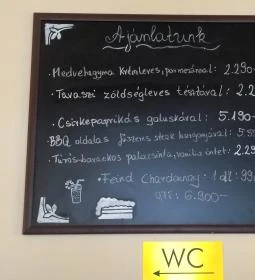 Ajánlatunk
Medvehagyma Krémleves, parmezánnal: 2.290-
• Tavaszi zöldségleves tésztával: 2.2
• Csirkepaprikás galuskával: 5.190-
BBQ oldalas fűszeres steak burgonyával: 5.99
• Túrós-barackos palacsinta, vanília öntet: 2.29
• Feind Chardonnay • 1 dl: 99
6.900-
WC